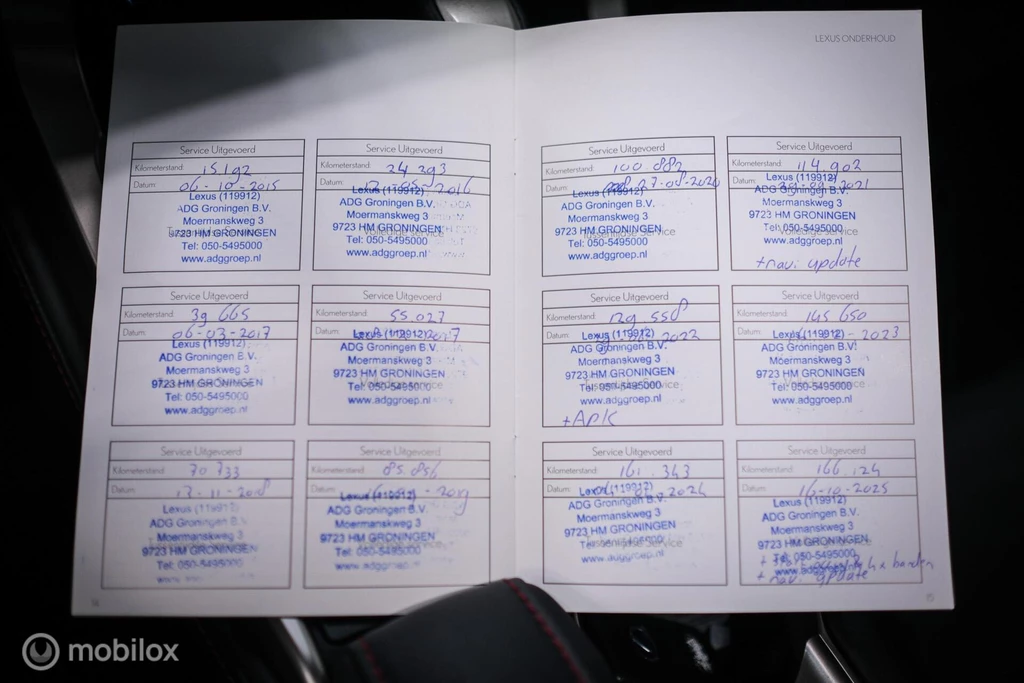 LEXUS ONDERHOUD
Service Uitgevoerd
Kilometerstand: 15192
Datum: 06-10-2015
Lexus (119912)
ADG Groningen B.V.
Moermanskweg 3
9723 HM GRONINGEN
Tel: 050-5495000
www.adggroep.nl
Service Uitgevoerd
Kilometerstand: 24 293
Datum: 2016
Lexus (119912)
ADG Groningen B.V.
Moermanskweg 3
9723 HM GRONINGEN
Volledige Service
Tel: 050-5495000
www.adggroep.nl
Service Uitgevoerd
Kilometerstand: 39 665
Datum: 06-03-2017
Lexus (119912)
ADG Groningen B.V.
Moermanskweg 3
9723 HM GRONINGEN
Tel: 050-5495000
www.adggroep.nl
Service Uitgevoerd
Kilometerstand: 55.027
Datum: 2017
Lexus (119912)
ADG Groningen B.V.
Moermanskweg 3
9723 HM GRONINGEN
Tel: 050-5495000
www.adggroep.nl
Service Uitgevoerd
Kilometerstand: 70 733
Datum: 13-11-2018
Lexus (119912)
ADG Groningen B.V.
Moermanskweg 3
9723 HM GRONINGEN
Tel: 050-5495000
Service Uitgevoerd
Kilometerstand: 85.856
Datum: 2019
Lexus (119912)
ADG Groningen B.V.
Moermanskweg 3
9723 HM GRONINGEN
Tel: 050-5495000
www.adggroep.nl
14
Service Uitgevoerd
Kilometerstand: 100 882
Datum: 27-08-2020
Lexus (119912)
ADG Groningen B.V.
Moermanskweg 3
9723 HM GRONINGEN
Tussentijdse Service
Tel: 050-5495000
www.adggroep.nl
Service Uitgevoerd
Kilometerstand: 114 902
Datum: 2021
Lexus (119912)
ADG Groningen B.V.
Moermanskweg 3
9723 HM GRONINGEN
Volledige Service
Tel: 050-5495000
www.adggroep.nl
+navi update
Service Uitgevoerd
Kilometerstand: 129 558
Datum: 2022
Lexus (119912)
ADG Groningen B.V.
Moermanskweg 3
9723 HM GRONINGEN
Tussentijdse Service
Tel: 050-5495000
www.adggroep.nl
+APK
Service Uitgevoerd
Kilometerstand: 145 650
Datum: 2023
Lexus (119912)
ADG Groningen B.V.
Moermanskweg 3
9723 HM GRONINGEN
Tel: 050-5495000
www.adggroep.nl
Service Uitgevoerd
Kilometerstand: 161.343
Datum: 2024
Lexus (119912)
ADG Groningen B.V.
Moermanskweg 3
9723 HM GRONINGEN
Tussentijdse Service
Tel: 050-5495000
www.adggroep.nl
Service Uitgevoerd
Kilometerstand: 166.124
Datum: 16-10-2025
Lexus (119912)
ADG Groningen B.V.
Moermanskweg 3
9723 HM GRONINGEN
Tel: 050-5495000
www.adggroep.nl
banden
+ navi update
15
mobilox